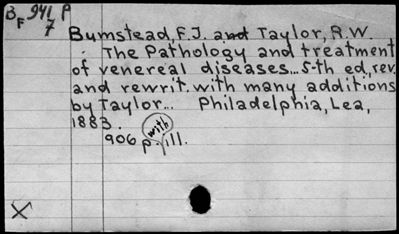 B F 941 P
7
Bumstead, F.J. and Taylor, R.W.
The Pathology and treatment
of venereal diseases... 5-th ed., rev.
and rewrit. with many additions
by Taylor... Philadelphia, Lea,
1883.
906 p. with ill.
X